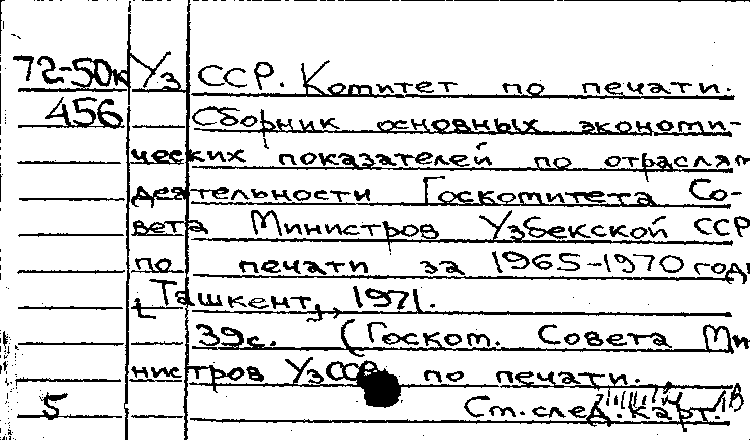 72-50к Уз ССР. Комитет по печати.
456 Сборник основных экономи-
ческих показателей по отраслям
деятельности Госкомитета Со-
вета Министров Узбекской ССР
по печати за 1965-1970 годы
Ташкент, 1971.
39с. (Госком. Совета Ми
нистров УзССР по печати.
5 См. след. карт.